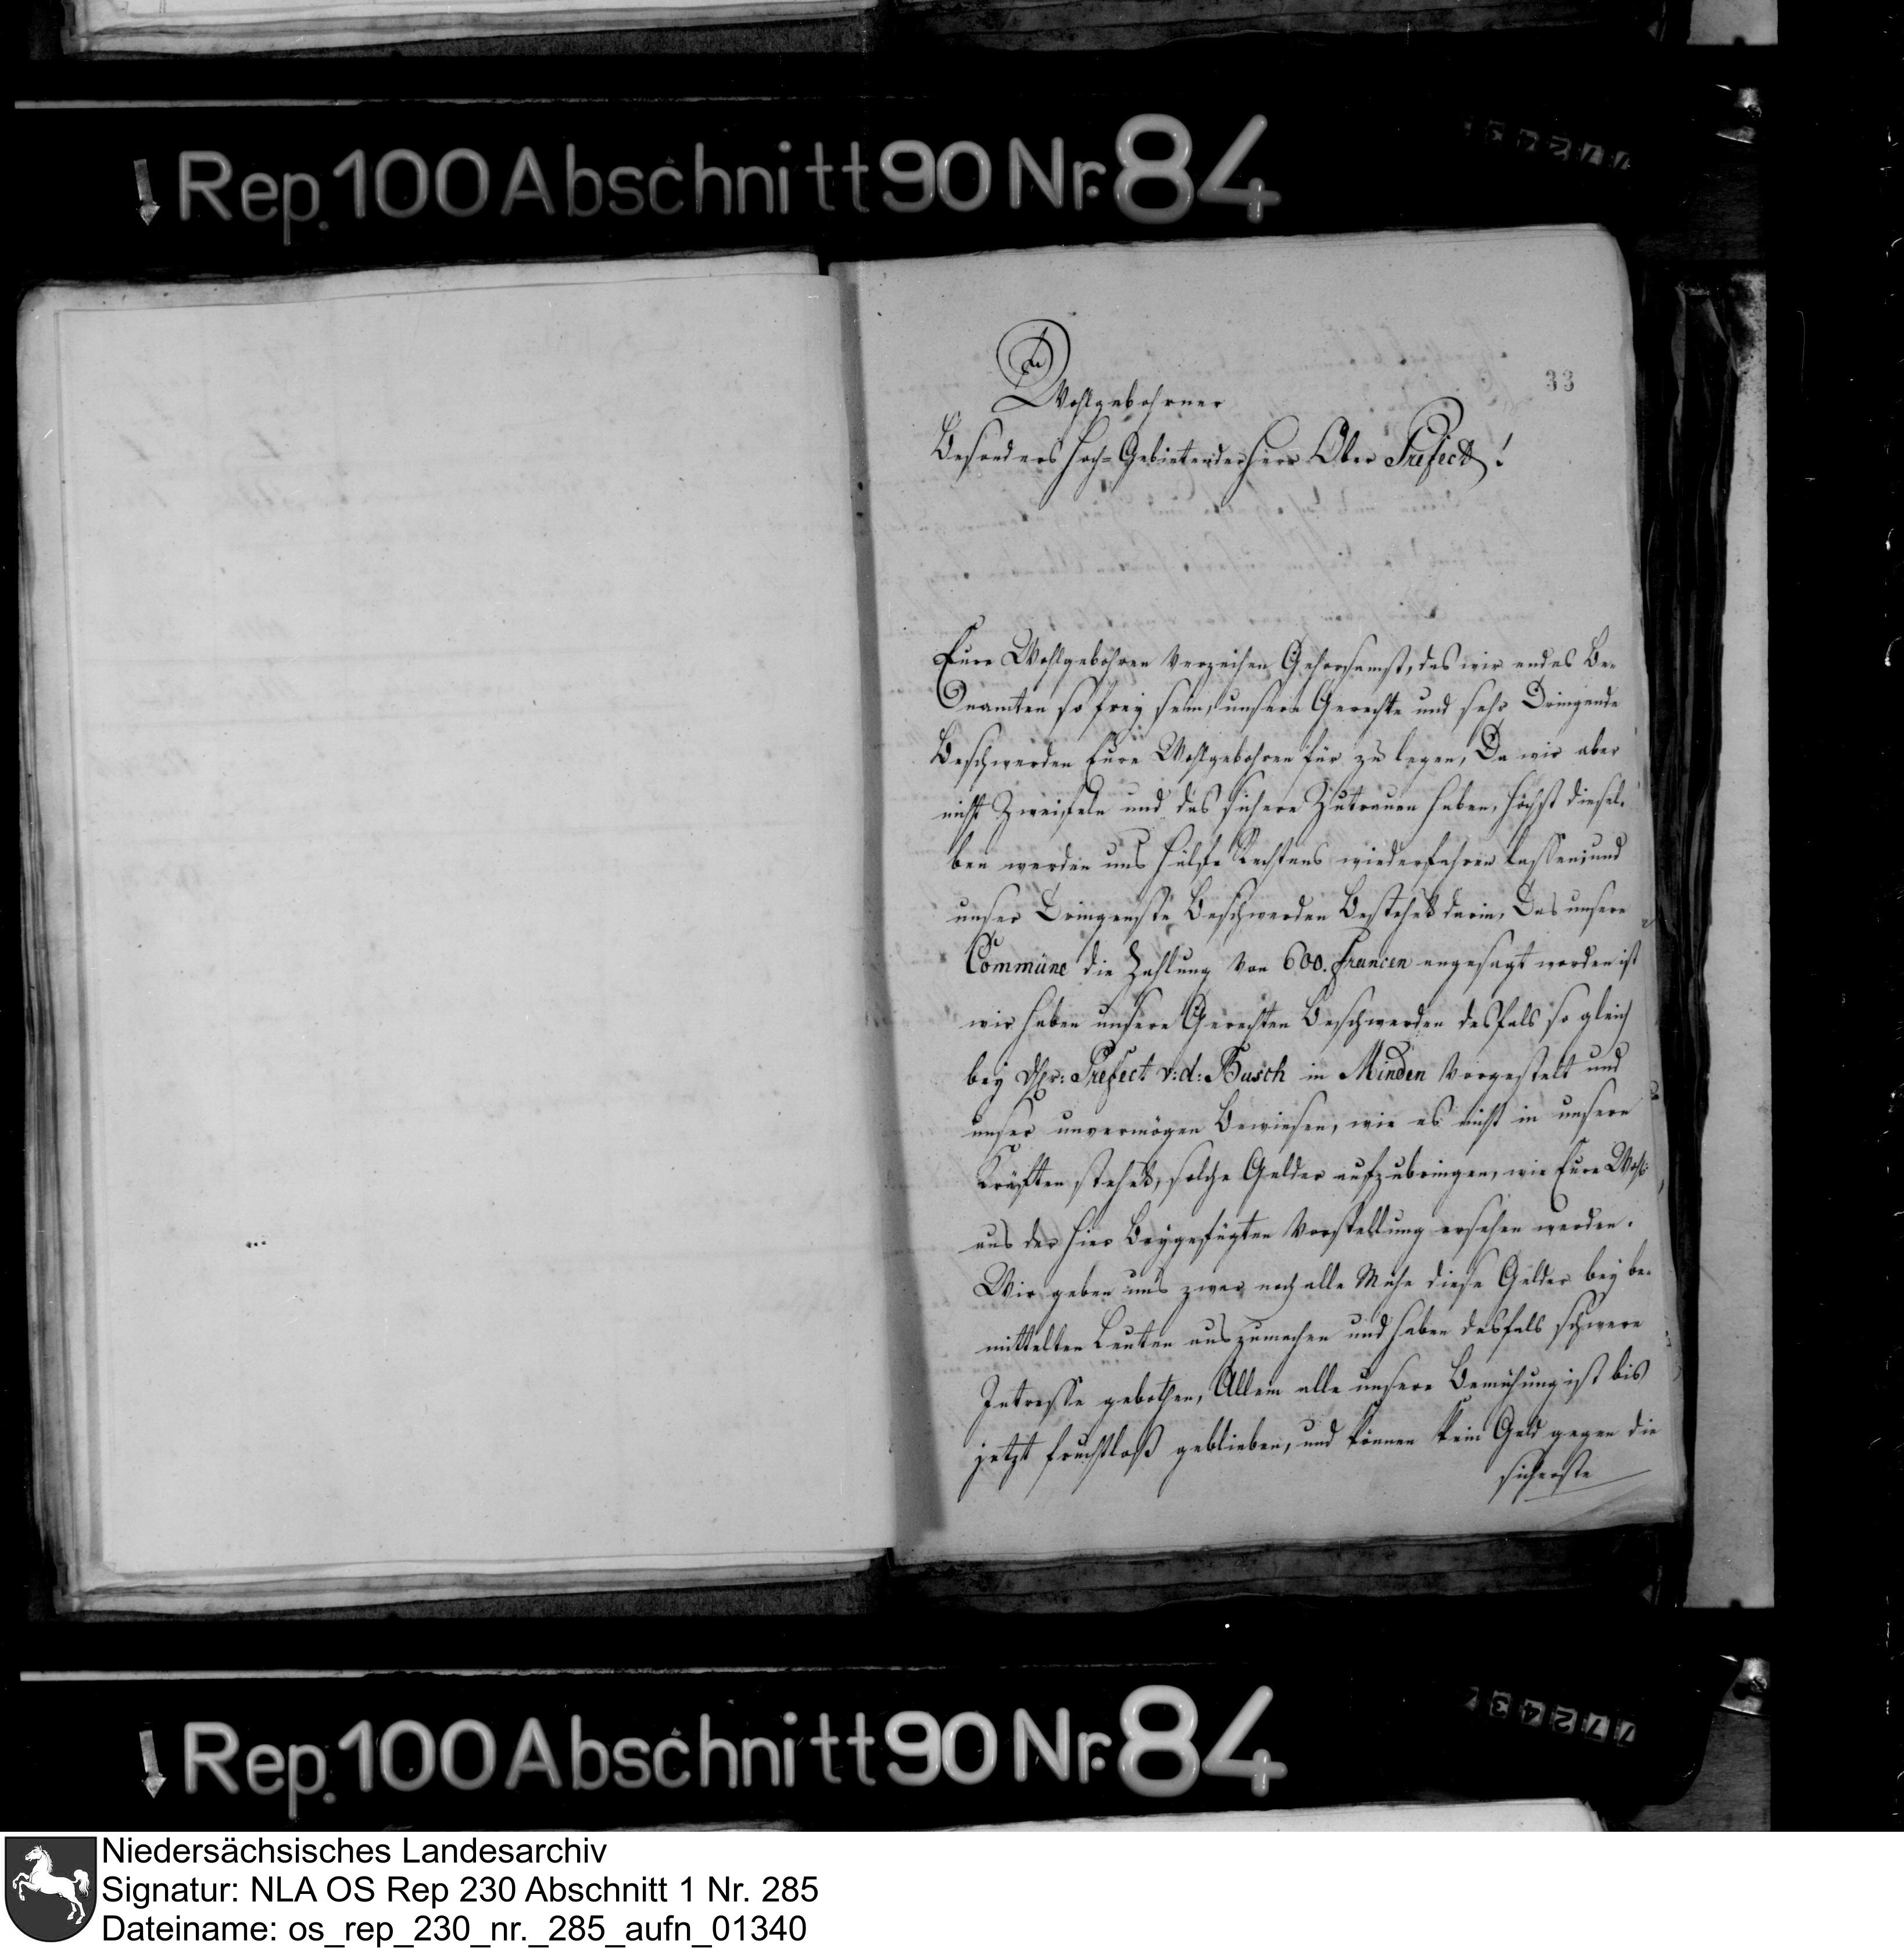 Rep. 100 Abschnitt 90 Nr. 84
33
Wohlgebohrner
Besonders Hoch-Gebietender Herr Ober Prefect!
Eure Wohlgebohren Verzeihen Gehorsamst, das wir endes Be-
Namten so frey sein, unsere Gerechte und sehr Dringende
Beschwerden Eure Wohlgebohren für zu legen, Da wir aber
nicht Zweifeln und das sichere Zutrauen haben, Höchst diesel-
ben werden uns Hülfe Rechtens wiederfahren lassen, und
unser Dringenste Beschwerden Bestehet darin, Das unsere
Commüne die Zahlung von 600. Francen angesagt worden ist
wir haben unsere Gerechten Beschwerden desfals so gleich
bey Hr: Prefect v: d: Busch in Minden Vorgestelt und
unser unvermögen Bewiesen, wie es nicht in unsern
Kräften stehet, solche Gelder aufzubringen, wie Eure Wohl:
aus der hier Beygefügten Vorstellung ersehen werden.
Wir geben uns zwar noch alle Mühe diese Gelder bey be-
mittelten Leuten auszumachen und haben desfals schwere
Intresse gebothen, Allein alle unsere Bemühung ist bis
jetzt fruchtloß geblieben, und können kein Geld gegen die
sicherste
Rep. 100 Abschnitt 90 Nr. 84
77243
Niedersächsisches Landesarchiv
Signatur: NLA OS Rep 230 Abschnitt 1 Nr. 285
Dateiname: os_rep_230_nr._285_aufn_01340